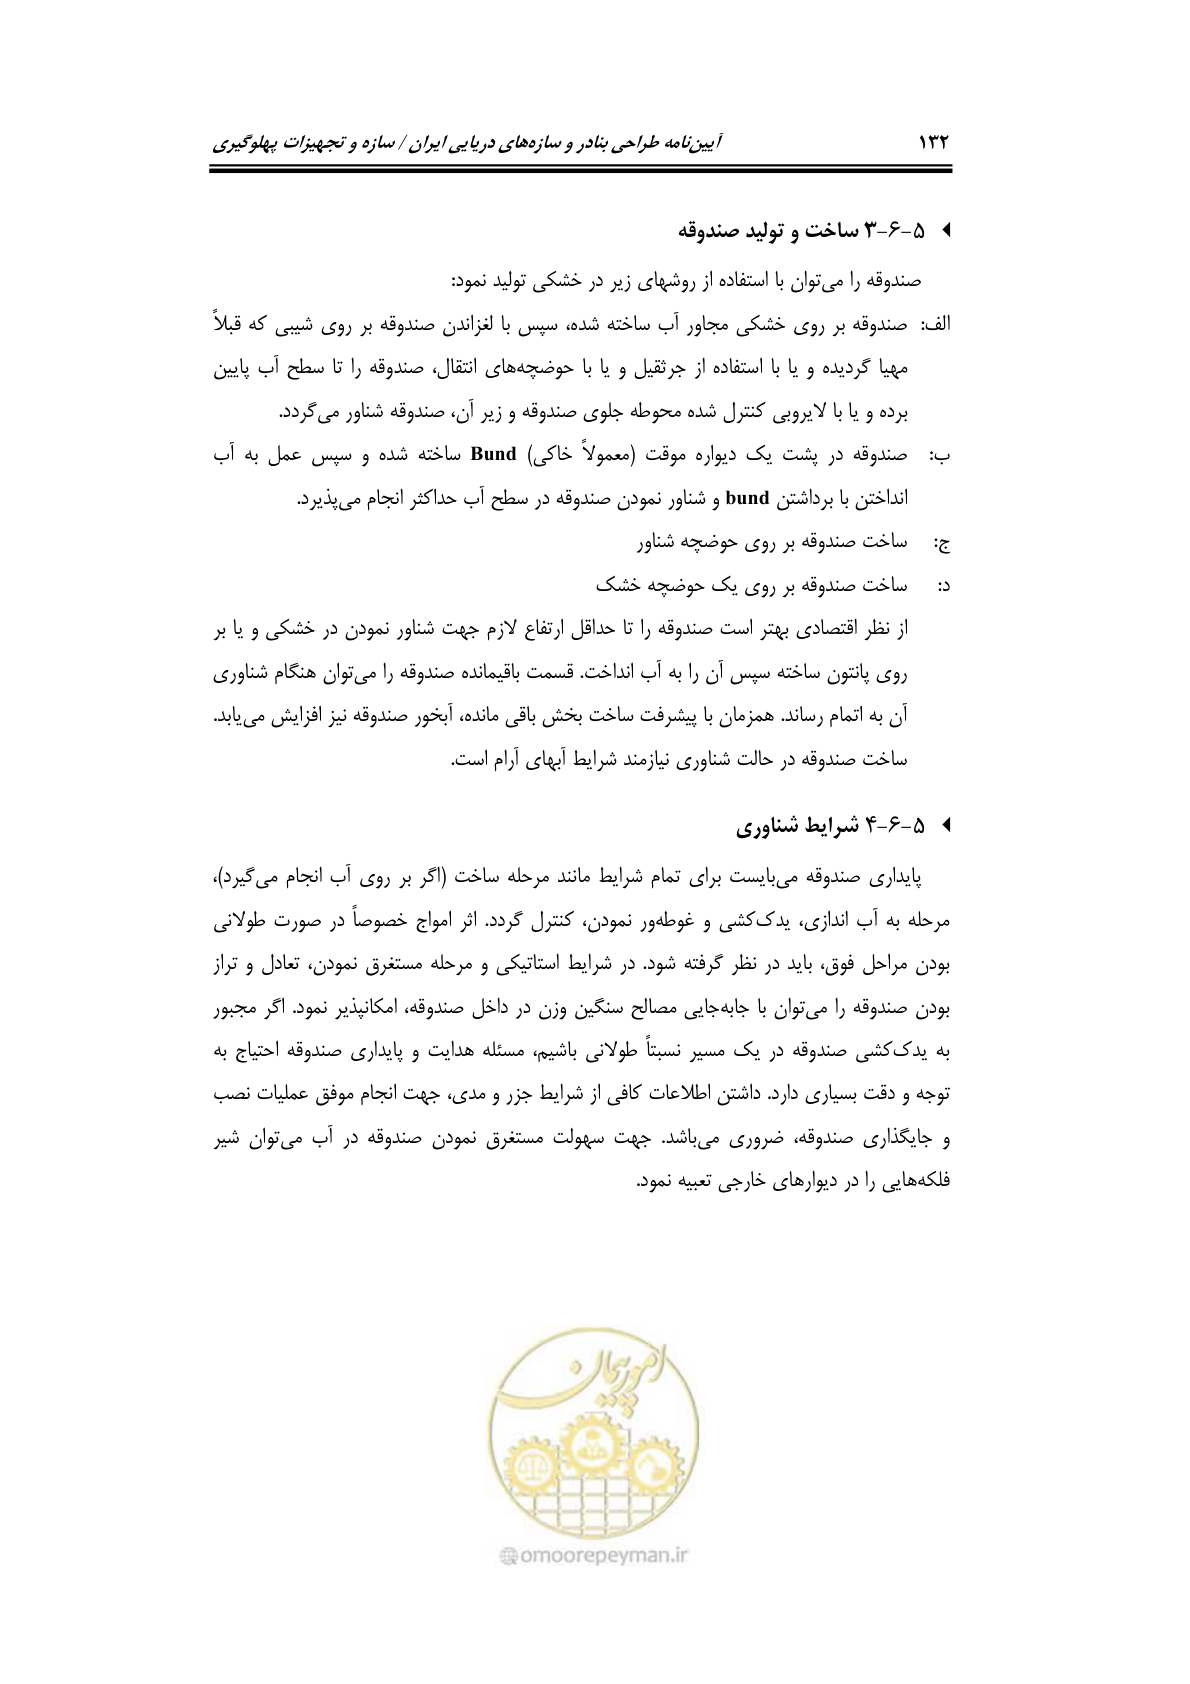 ۱۳۲
آیین‌نامه طراحی بنادر و سازه‌های دریایی ایران / سازه و تجهیزات پهلوگیری
۵-۶-۳ ساخت و تولید صندوقه
صندوقه را می‌توان با استفاده از روشهای زیر در خشکی تولید نمود:
الف: صندوقه بر روی خشکی مجاور آب ساخته شده، سپس با لغزاندن صندوقه بر روی شیبی که قبلاً
مهیا گردیده و یا با استفاده از جرثقیل و یا با حوضچه‌های انتقال، صندوقه را تا سطح آب پایین
برده و یا با لایروبی کنترل شده محوطه جلوی صندوقه و زیر آن، صندوقه شناور می‌گردد.
ب: صندوقه در پشت یک دیواره موقت (معمولاً خاکی) Bund ساخته شده و سپس عمل به آب
انداختن با برداشتن bund و شناور نمودن صندوقه در سطح آب حداکثر انجام می‌پذیرد.
ج: ساخت صندوقه بر روی حوضچه شناور
د: ساخت صندوقه بر روی یک حوضچه خشک
از نظر اقتصادی بهتر است صندوقه را تا حداقل ارتفاع لازم جهت شناور نمودن در خشکی و یا بر
روی پانتون ساخته سپس آن را به آب انداخت. قسمت باقیمانده صندوقه را می‌توان هنگام شناوری
آن به اتمام رساند. همزمان با پیشرفت ساخت بخش باقی مانده، آبخور صندوقه نیز افزایش می‌یابد.
ساخت صندوقه در حالت شناوری نیازمند شرایط آبهای آرام است.
۵-۶-۴ شرایط شناوری
پایداری صندوقه می‌بایست برای تمام شرایط مانند مرحله ساخت (اگر بر روی آب انجام می‌گیرد)،
مرحله به آب اندازی، یدک‌کشی و غوطه‌ور نمودن، کنترل گردد. اثر امواج خصوصاً در صورت طولانی
بودن مراحل فوق، باید در نظر گرفته شود. در شرایط استاتیکی و مرحله مستغرق نمودن، تعادل و تراز
بودن صندوقه را می‌توان با جابه‌جایی مصالح سنگین وزن در داخل صندوقه، امکانپذیر نمود. اگر مجبور
به یدک‌کشی صندوقه در یک مسیر نسبتاً طولانی باشیم، مسئله هدایت و پایداری صندوقه احتیاج به
توجه و دقت بسیاری دارد. داشتن اطلاعات کافی از شرایط جزر و مدی، جهت انجام موفق عملیات نصب
و جایگذاری صندوقه، ضروری می‌باشد. جهت سهولت مستغرق نمودن صندوقه در آب می‌توان شیر
فلکه‌هایی را در دیوارهای خارجی تعبیه نمود.
امور پیمان
@omoorepeyman.ir